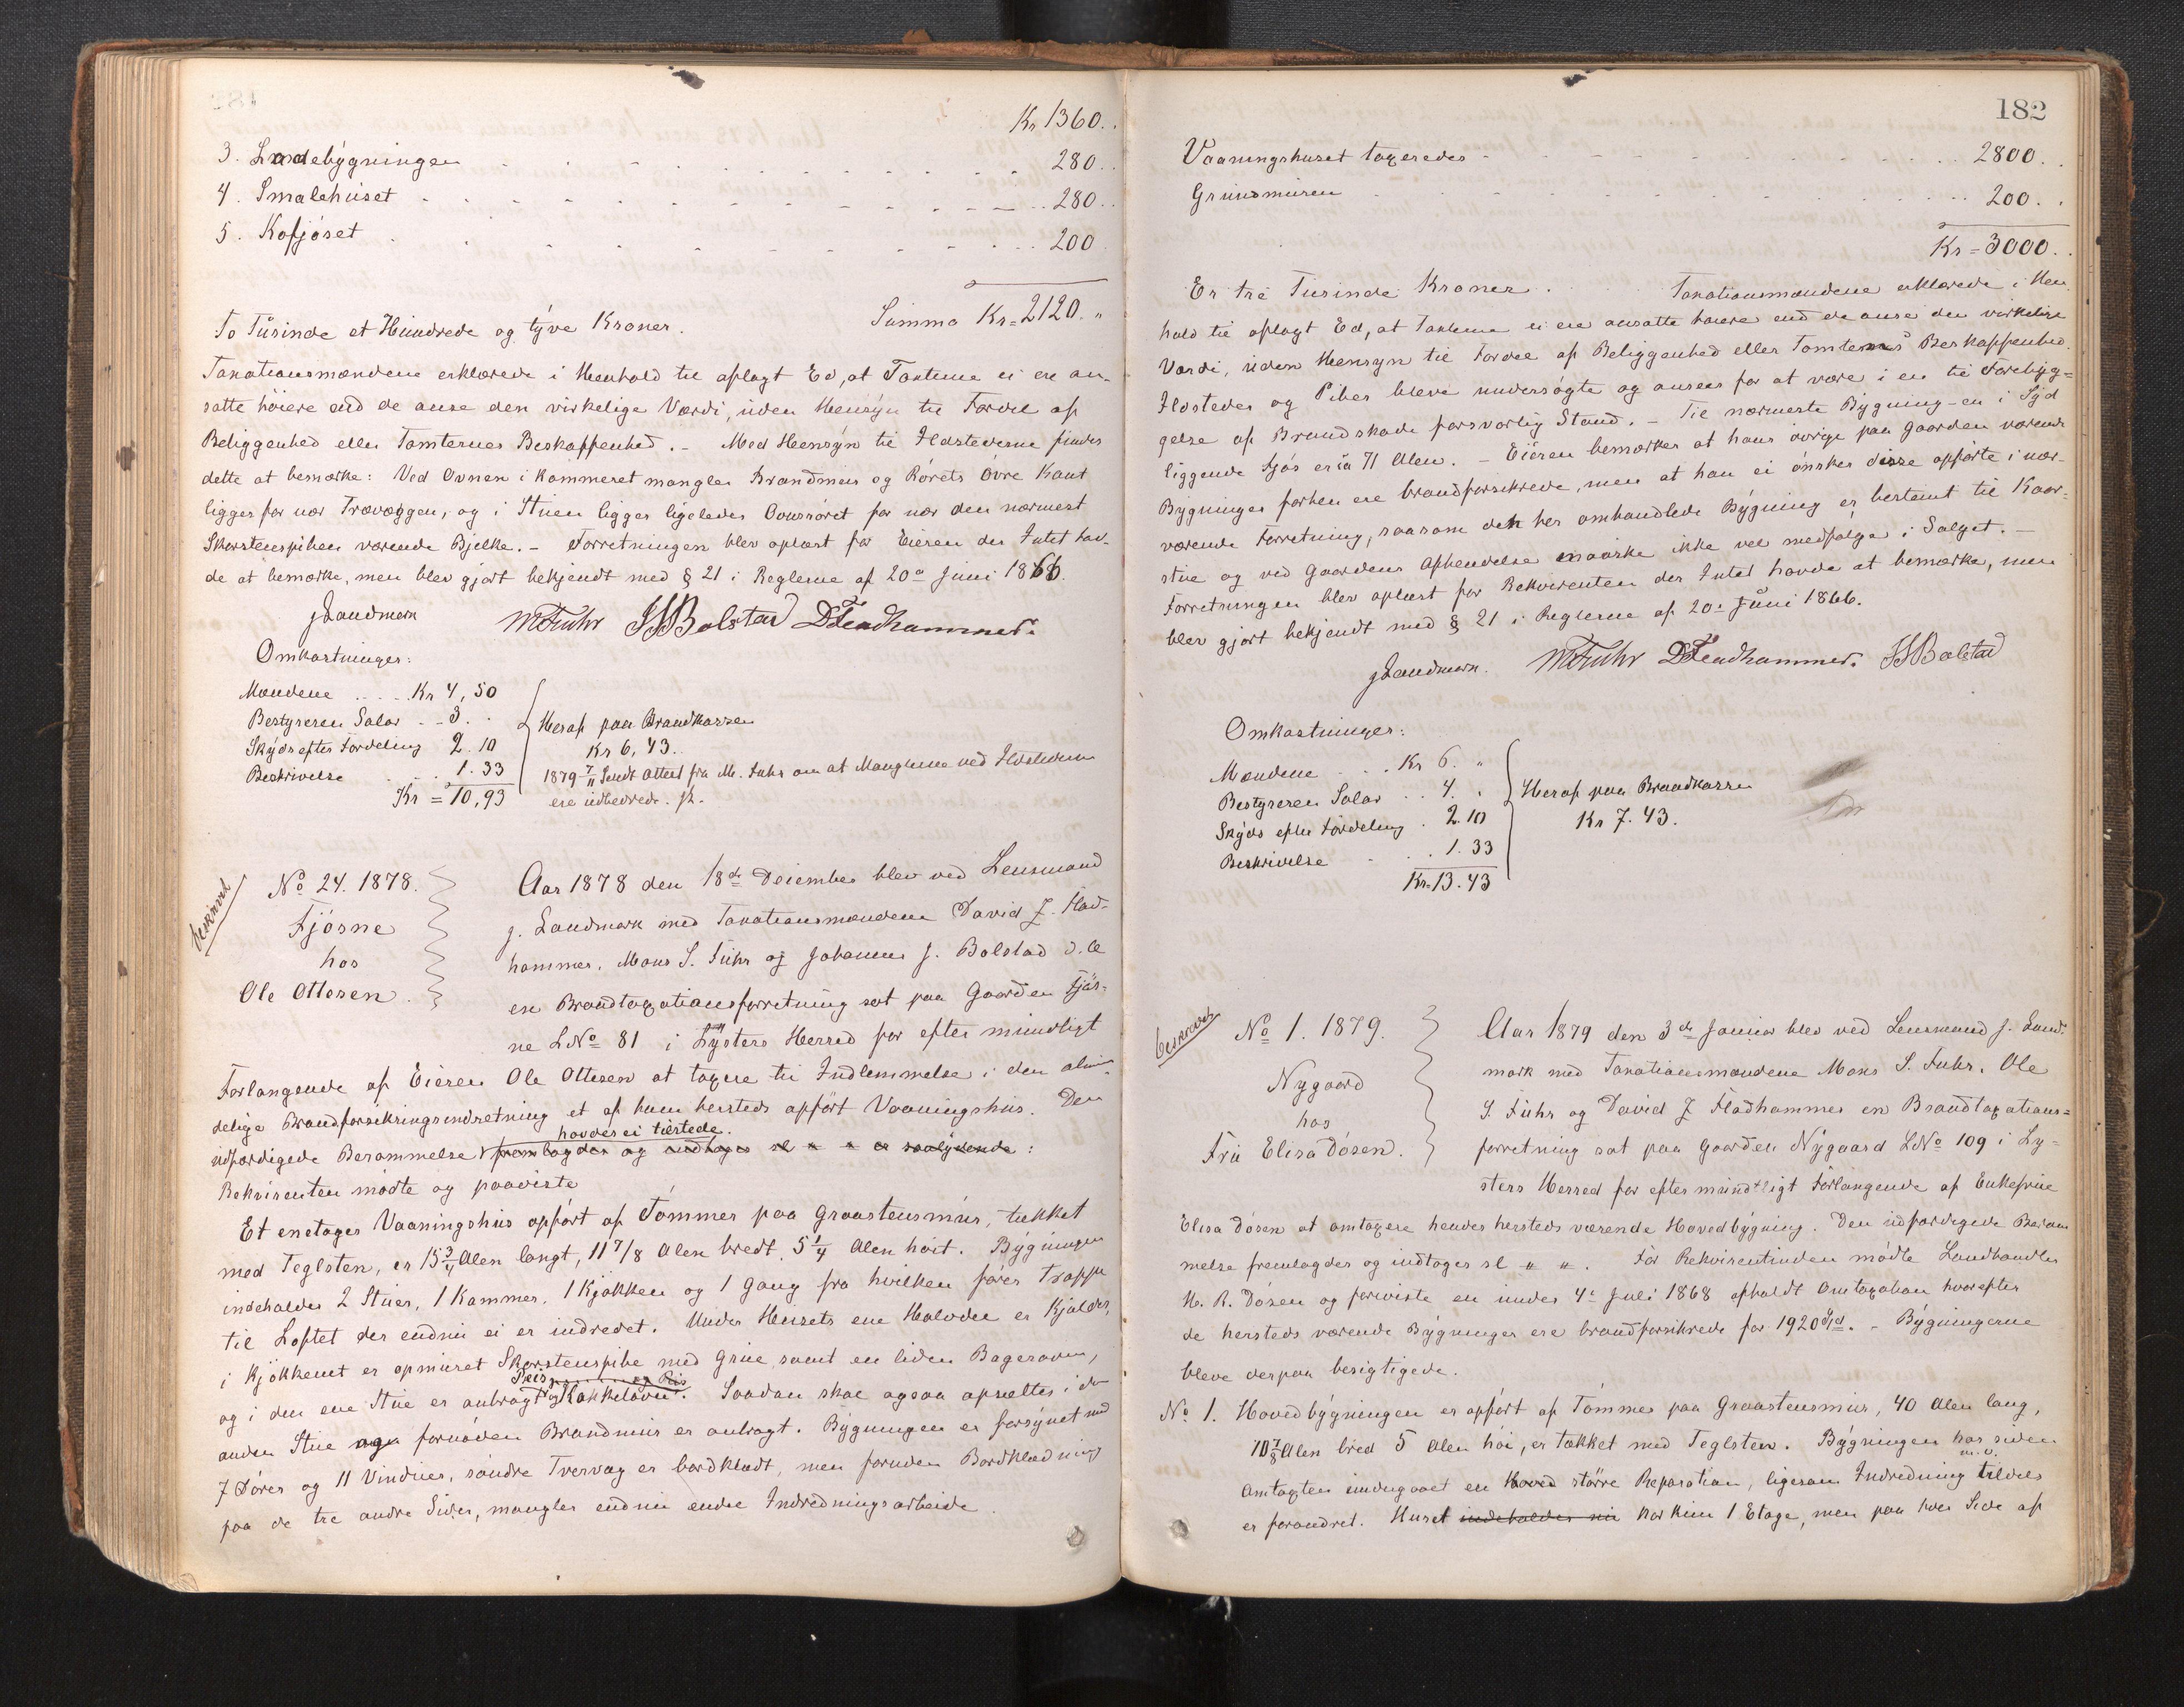 Kr 1360..
3. Ladebygningen 280..
4. Smalehuset 280..
5. Kofjøset 200
To Tusinde et Hundrede og tyve Kroner. Summa Kr=2120. "
Taxationsmændene erklærede i Henhold til aflagt Ed, at Taxterne ei ere an-
satte høiere end de anse den virkelige Værdi, uden Hensyn til Fordel af
Beliggenhed eller Tomternes Beskaffenhed. - Med Hensyn til Ildstederne findes
dette at bemærke: Ved Ovnen i Kammeret mangler Brandmur og Rørets øvre Kant
ligger for nær Trævæggen, og i Stuen ligger ligeledes Ovnsrøret for nær den nærmest
Skorstenspiben værende Bjelke. - Forretningen blev oplæst for Eieren der Intet hav-
de at bemærke, men blev gjort bekjendt med § 21 i Reglerne af 20de Juni 1866.
J Landmark M S Fuhr J J Bolstad D J Fladhammer.
Omkostninger:
Mændene Kr 4,50
Bestyreren Salar 3.
Skyds efter Fordeling 2.10
Beskrivelse 1.33
Kr = 10,93
Heraf paa Brandkassen
Kr 6,43.
1879 7/11 Sendt Attest fra M. Fuhr om at Manglerne ved Ildstederne
ere udbedrede.
beskrevet
No 24. 1878.
Fjøsne
hos
Ole Ottesen.
Aar 1878 den 18de December blev ved Lensmand
J. Landmark med Taxationsmændene David J. Flad-
hammer, Mons S. Fuhr og Johannes J. Bolstad d.æ
en Brandtaxationsforretning sat paa Gaarden Fjøs-
ne LNo 81 i Lysters Herred for efter mundtligt
Forlangende af Eieren Ole Ottesen at taxere til Indlemmelse i den almin-
delige Brandforsikringsindretning et af ham hersteds opført Vaaningshus. Den
havdes ei tilstede.
udfærdigede Berammelse fremlagdes og indtages sl " " er saalydende:
Rekvirenten mødte og paaviste
Et enetages Vaaningshus opført af Tømmer paa Graastensmur, tækket
med Teglsten, er 15 3/4 Alen langt, 11 7/8 Alen bredt, 5 1/4 Alen høit. Bygningen
indeholder 2 Stuer, 1 Kammer, 1 Kjøkken og 1 Gang fra hvilken fører Trappe
til Loftet der endnu ei er indredet. Under Husets ene Halvdel er Kjælder,
i Kjøkkenet er opmuret Skorstenspibe med Grue samt en liden Bagerovn,
og i den ene Stue er anbragt Peis og Kakkelovn. Saadan skal ogsaa opsættes i den
anden Stue fornøden Brandmur er anbragt. Bygningen er forsynet med
7 Dører og 11 Vinduer, søndre Tvervæg er bordklædt, men foruden Bordklædning
paa de tre andre Sider, mangler endnu endel Indredningsarbeide.
182
Vaaningshuset taxeredes 2800..
Grundmuren 200..
Kr = 3000..
Er tre Tusinde Kroner. Taxationsmændene erklærede i Hen-
hold til aflagt Ed, at Taxterne ei ere ansatte høiere end de anse den virkelige
Værdi, uden Hensyn til Fordel af Beliggenhed eller Tomtens Beskaffenhed.
Ildsteder og Piber bleve undersøgte og ansees for at være i en til Forebyg=
gelse af Brandskade forsvarlig Stand. - Til nærmeste Bygning - en i Syd
liggende Fjøs er ca 71 Alen. - Eieren bemærker at hans øvrige paa Gaarden værende
Bygninger forhen ere brandforsikrede, men at han ei ønsker disse opførte i nær-
værende Forretning, saasom den her omhandlede Bygning er bestemt til Kaar-
stue og ved Gaardens Afhændelse maaske ikke vil medfølge i Salget. -
Forretningen blev oplæst for Rekvirenten der Intet havde at bemærke, men
blev gjort bekjendt med § 21 i Reglerne af 20de Juni 1866.
J Landmark. M S Fuhr D J Fladhammer. J J Bolstad
Omkostninger:
Mændene Kr 6. "
Bestyreren Salar 4.
Skyds efter Fordeling 2.10
Beskrivelse 1.33
Kr. 13.43
Heraf paa Brandkassen
Kr 7.43.
beskrevet
No 1. 1879.
Nygaard
hos
Fru Elisa Døsen.
Aar 1879 den 3de Januar blev ved Lensmand J. Land-
mark med Taxationsmændene Mons S. Fuhr, Ole
S. Fuhr og David J Fladhammer en Brandtaxations=
forretning sat paa Gaarden Nygaard LNo 109 i Ly-
sters Herred for efter mundtligt Forlangende af Enkefrue
Elisa Døsen at omtaxere hendes hersteds værende Hovedbygning. Den udfærdigede Beram-
melse fremlagdes og indtages sl " ". For Rekvirentinden mødte Landhandler
H. R. Døsen og foreviste en under 4de Juli 1868 afholdt Omtaxation hvorefter
de hersteds værende Bygninger ere brandforsikrede for 1920 Spd. - Bygningerne
bleve derpaa besigtigede.
No 1. Hovedbygningen er opført af Tømmer paa Graastensmur, 40 Alen lang,
10 7/8 Alen bred 5 Alen høi, er tækket med Teglsten. Bygningen har siden
m. v.
Omtaxten undergaaet en større Reparation, ligesom Indredning tildels
er forandret. Huset indeholder nu har kun 1 Etage, men paa hver Side af